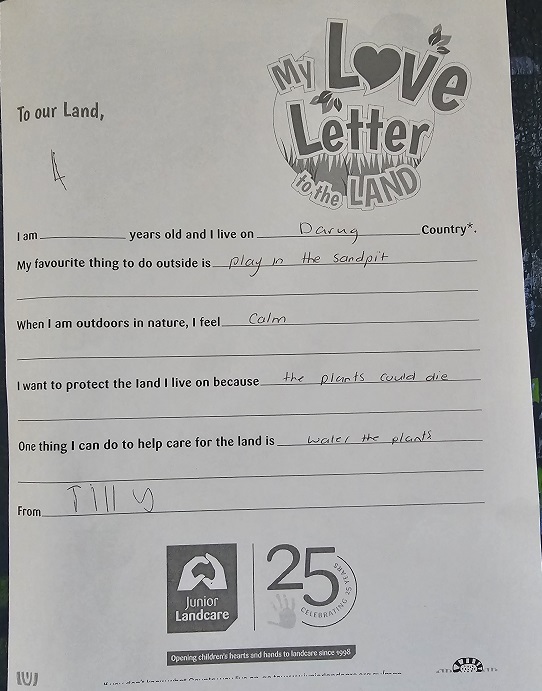 My Love
Letter
to the LAND
To our Land,
4
I am ____________ years old and I live on Darug Country*.
My favourite thing to do outside is play in the sandpit
When I am outdoors in nature, I feel Calm
I want to protect the land I live on because the plants could die
One thing I can do to help care for the land is water the plants
From Tilly
Junior
Landcare
25
CELEBRATING 25 YEARS
Opening children's hearts and hands to landcare since 1998